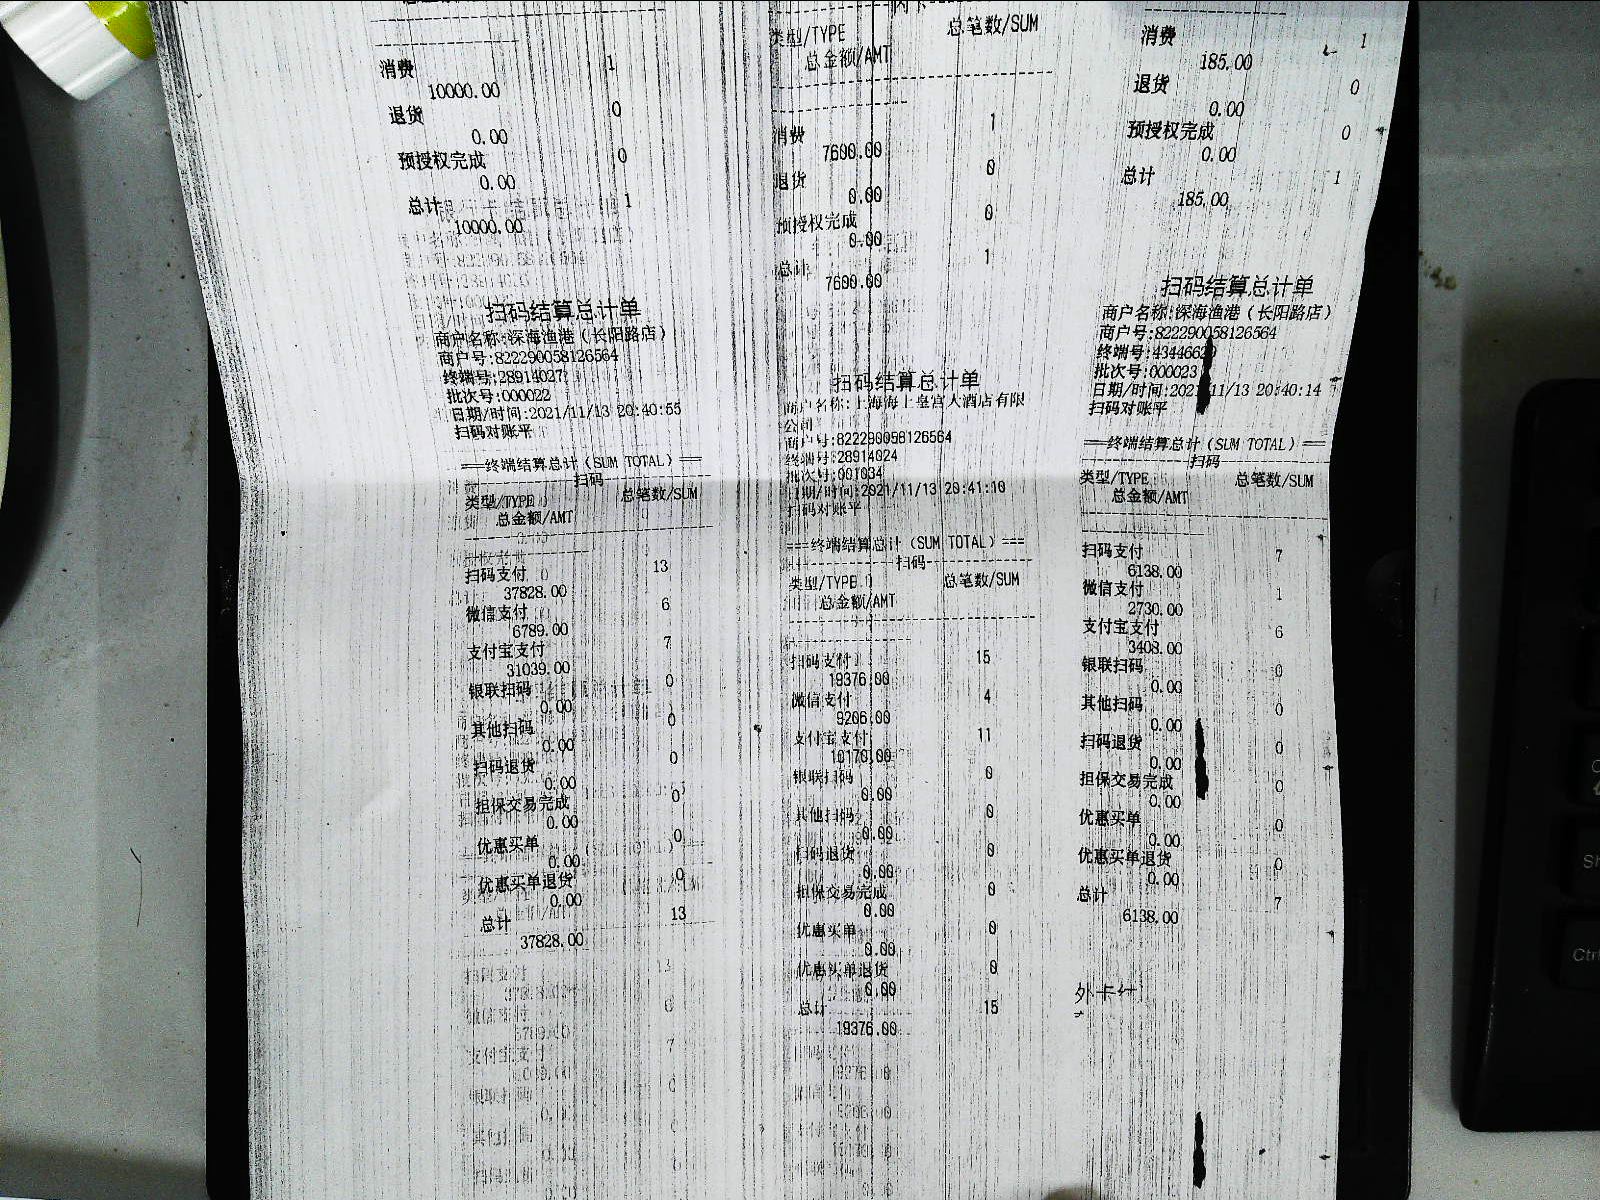 消费 1
10000.00
退货 0
0.00
预授权完成 0
0.00
总计 1
10000.00
扫码结算总计单
商户名称:深海渔港（长阳路店）
商户号:822290058126564
终端号:28914027
批次号:000022
日期/时间:2021/11/13 20:40:55
扫码对账平
===终端结算总计（SUM TOTAL）===
扫码
类型/TYPE 总笔数/SUM
总金额/AMT
扫码支付 13
37828.00
微信支付 6
6789.00
支付宝支付 7
31039.00
银联扫码 0
0.00
其他扫码 0
0.00
扫码退货 0
0.00
担保交易完成 0
0.00
优惠买单 0
0.00
优惠买单退货 0
0.00
总计 13
37828.00
类型/TYPE 总笔数/SUM
总金额/AMT
消费 1
7600.00
退货 0
0.00
预授权完成 0
0.00
总计 1
7600.00
扫码结算总计单
商户名称:上海海上皇宫大酒店有限
公司
商户号:822290058126564
终端号:28914024
批次号:001034
日期/时间:2021/11/13 20:41:10
扫码对账平
===终端结算总计（SUM TOTAL）===
扫码
类型/TYPE 总笔数/SUM
总金额/AMT
扫码支付 15
19376.00
微信支付 4
9206.00
支付宝支付 11
10170.00
银联扫码 0
0.00
其他扫码 0
0.00
扫码退货 0
0.00
担保交易完成 0
0.00
优惠买单 0
0.00
优惠买单退货 0
0.00
总计 15
19376.00
消费 1
185.00
退货 0
0.00
预授权完成 0
0.00
总计 1
185.00
扫码结算总计单
商户名称:深海渔港（长阳路店）
商户号:822290058126564
终端号:4344662
批次号:000023
日期/时间:2021/11/13 20:40:14
扫码对账平
===终端结算总计（SUM TOTAL）===
扫码
类型/TYPE 总笔数/SUM
总金额/AMT
扫码支付 7
6138.00
微信支付 1
2730.00
支付宝支付 6
3408.00
银联扫码 0
0.00
其他扫码 0
0.00
扫码退货 0
0.00
担保交易完成 0
0.00
优惠买单 0
0.00
优惠买单退货 0
0.00
总计 7
6138.00
外卡